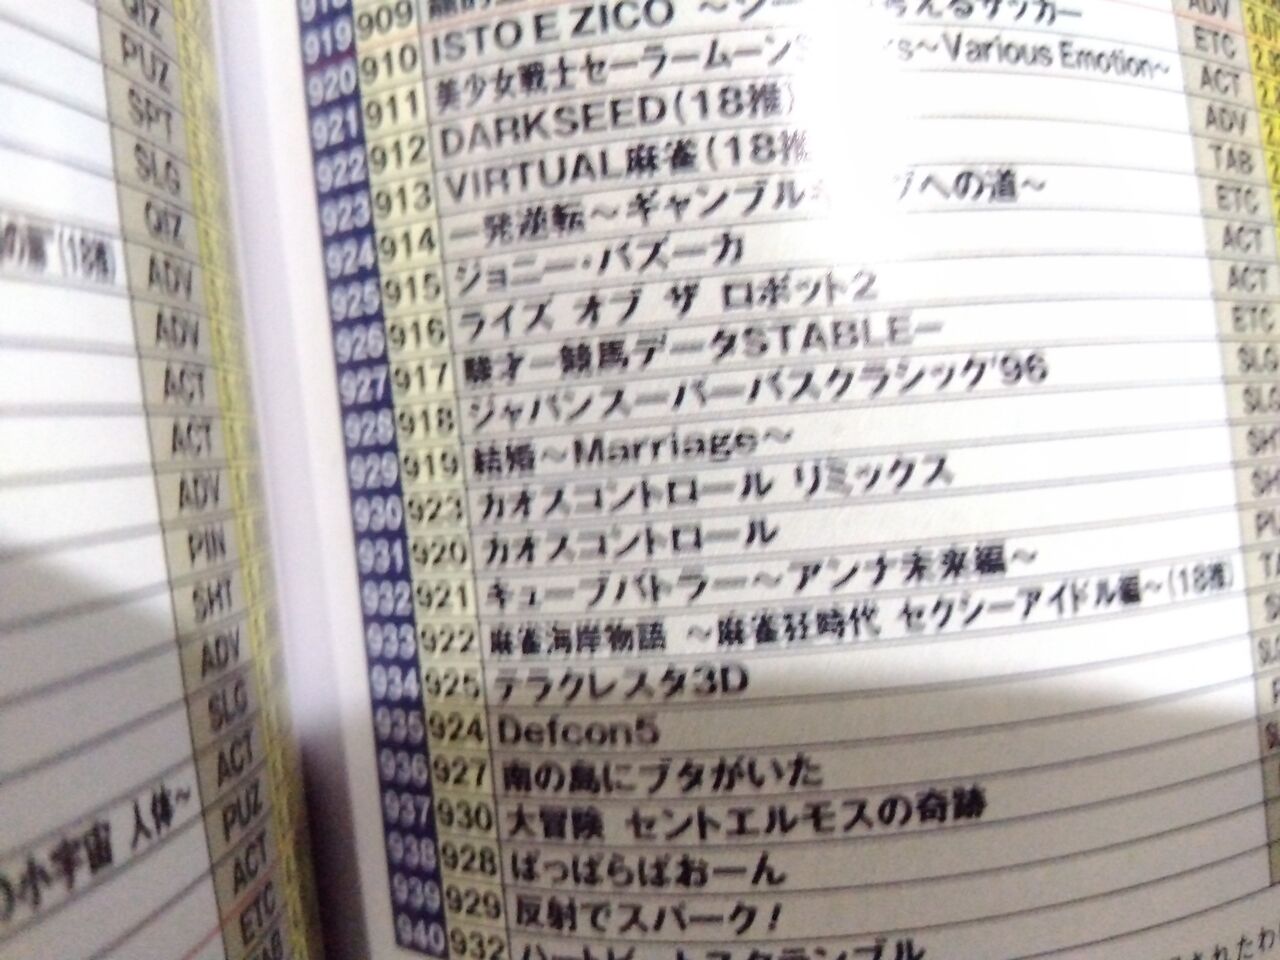 QIZ
PUZ
SPT
SLG
QIZ
(18推) ADV
ADV
ACT
ACT
ADV
PIN
SHT
ADV
SLG
ACT
小宇宙 人体～ PUZ
ACT
ETC
919 909 ADV
920 910 ISTO E ZICO ～ 考えるサッカー ETC
921 911 美少女戦士セーラームーンS ～Various Emotion～ ACT
922 912 DARKSEED(18推) ADV
923 913 VIRTUAL麻雀(18推 TAB
924 914 一発逆転～ギャンブル への道～ ETC
925 915 ジョニー・バズーカ ACT
926 916 ライズ オブ ザ ロボット2 ACT
927 917 駿才ー競馬データSTABLEー ETC
928 918 ジャパンスーパーバスクラシック'96 SLG
929 919 結婚～Marriage～ SLG
930 923 カオスコントロール リミックス
931 920 カオスコントロール
932 921 キューブバトラー～アンナ未来編～
933 922 麻雀海岸物語 ～麻雀狂時代 セクシーアイドル編～(18推)
934 925 テラクレスタ3D
935 924 Defcon5
936 927 南の島にブタがいた
937 930 大冒険 セントエルモスの奇跡
938 928 ぱっぱらぱおーん
939 929 反射でスパーク!
940 932 ハートビートスクランブル
されたわ